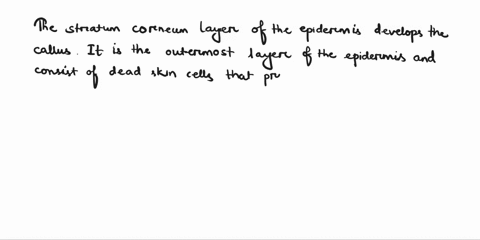 The stratum corneum layer of the epidermis develops the
callus. It is the outermost layer of the epidermis and
consist of dead skin cells that pr